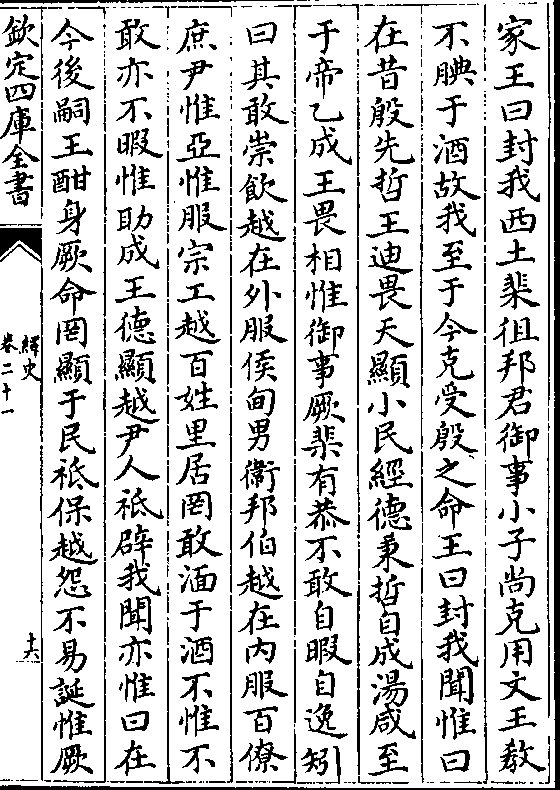 家王曰封我西土棐徂邦君御事小子尚克用文王教
不腆于酒故我至于今克受殷之命王曰封我聞惟曰
在昔殷先哲王迪畏天顯小民經德秉哲自成湯咸至
于帝乙成王畏相惟御事厥棐有恭不敢自暇自逸矧
曰其敢崇飲越在外服侯甸男衞邦伯越在内服百僚
庶尹惟亞惟服宗工越百姓里居罔敢湎于酒不惟不
敢亦不暇惟助成王德顯越尹人祗辟我聞亦惟曰在
今後嗣王酣身厥命罔顯于民祗保越怨不易誕惟厥
欽定四庫全書
繹史
卷二十一
十六